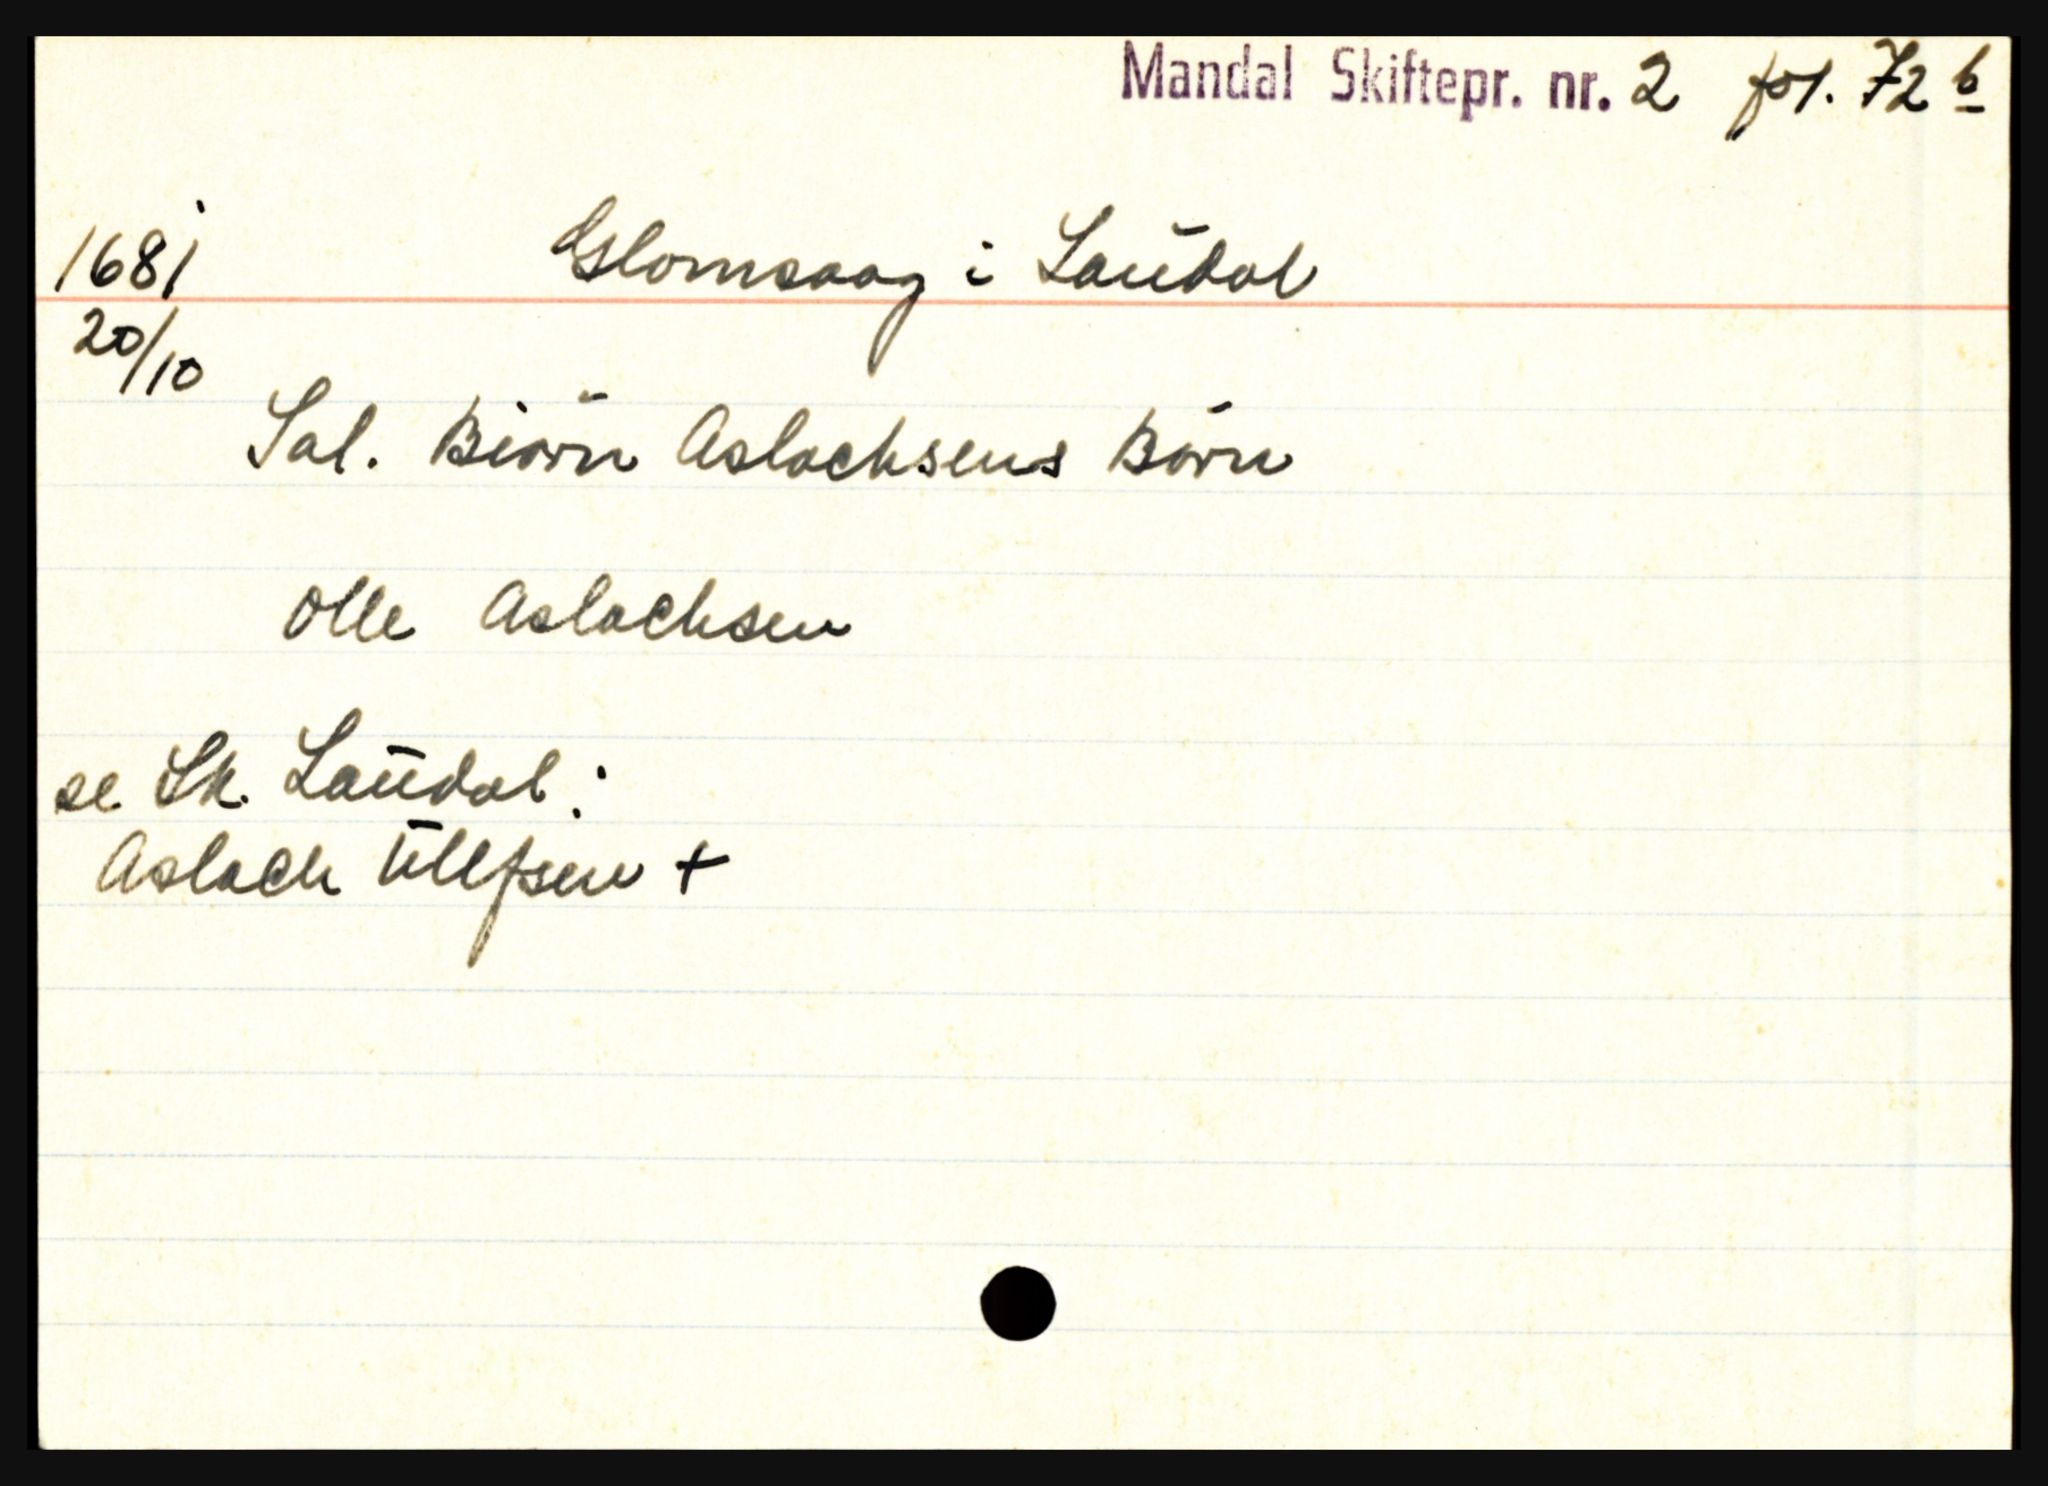 Mandal Skiftepr. nr. 2 fol. 72 b
1681 Glomsaag i Laudal
20/10
Sal. Biörn Aslachsens Börn
Olle Aslachsen
se Sk. Laudal:
Aslach Ullfsen +